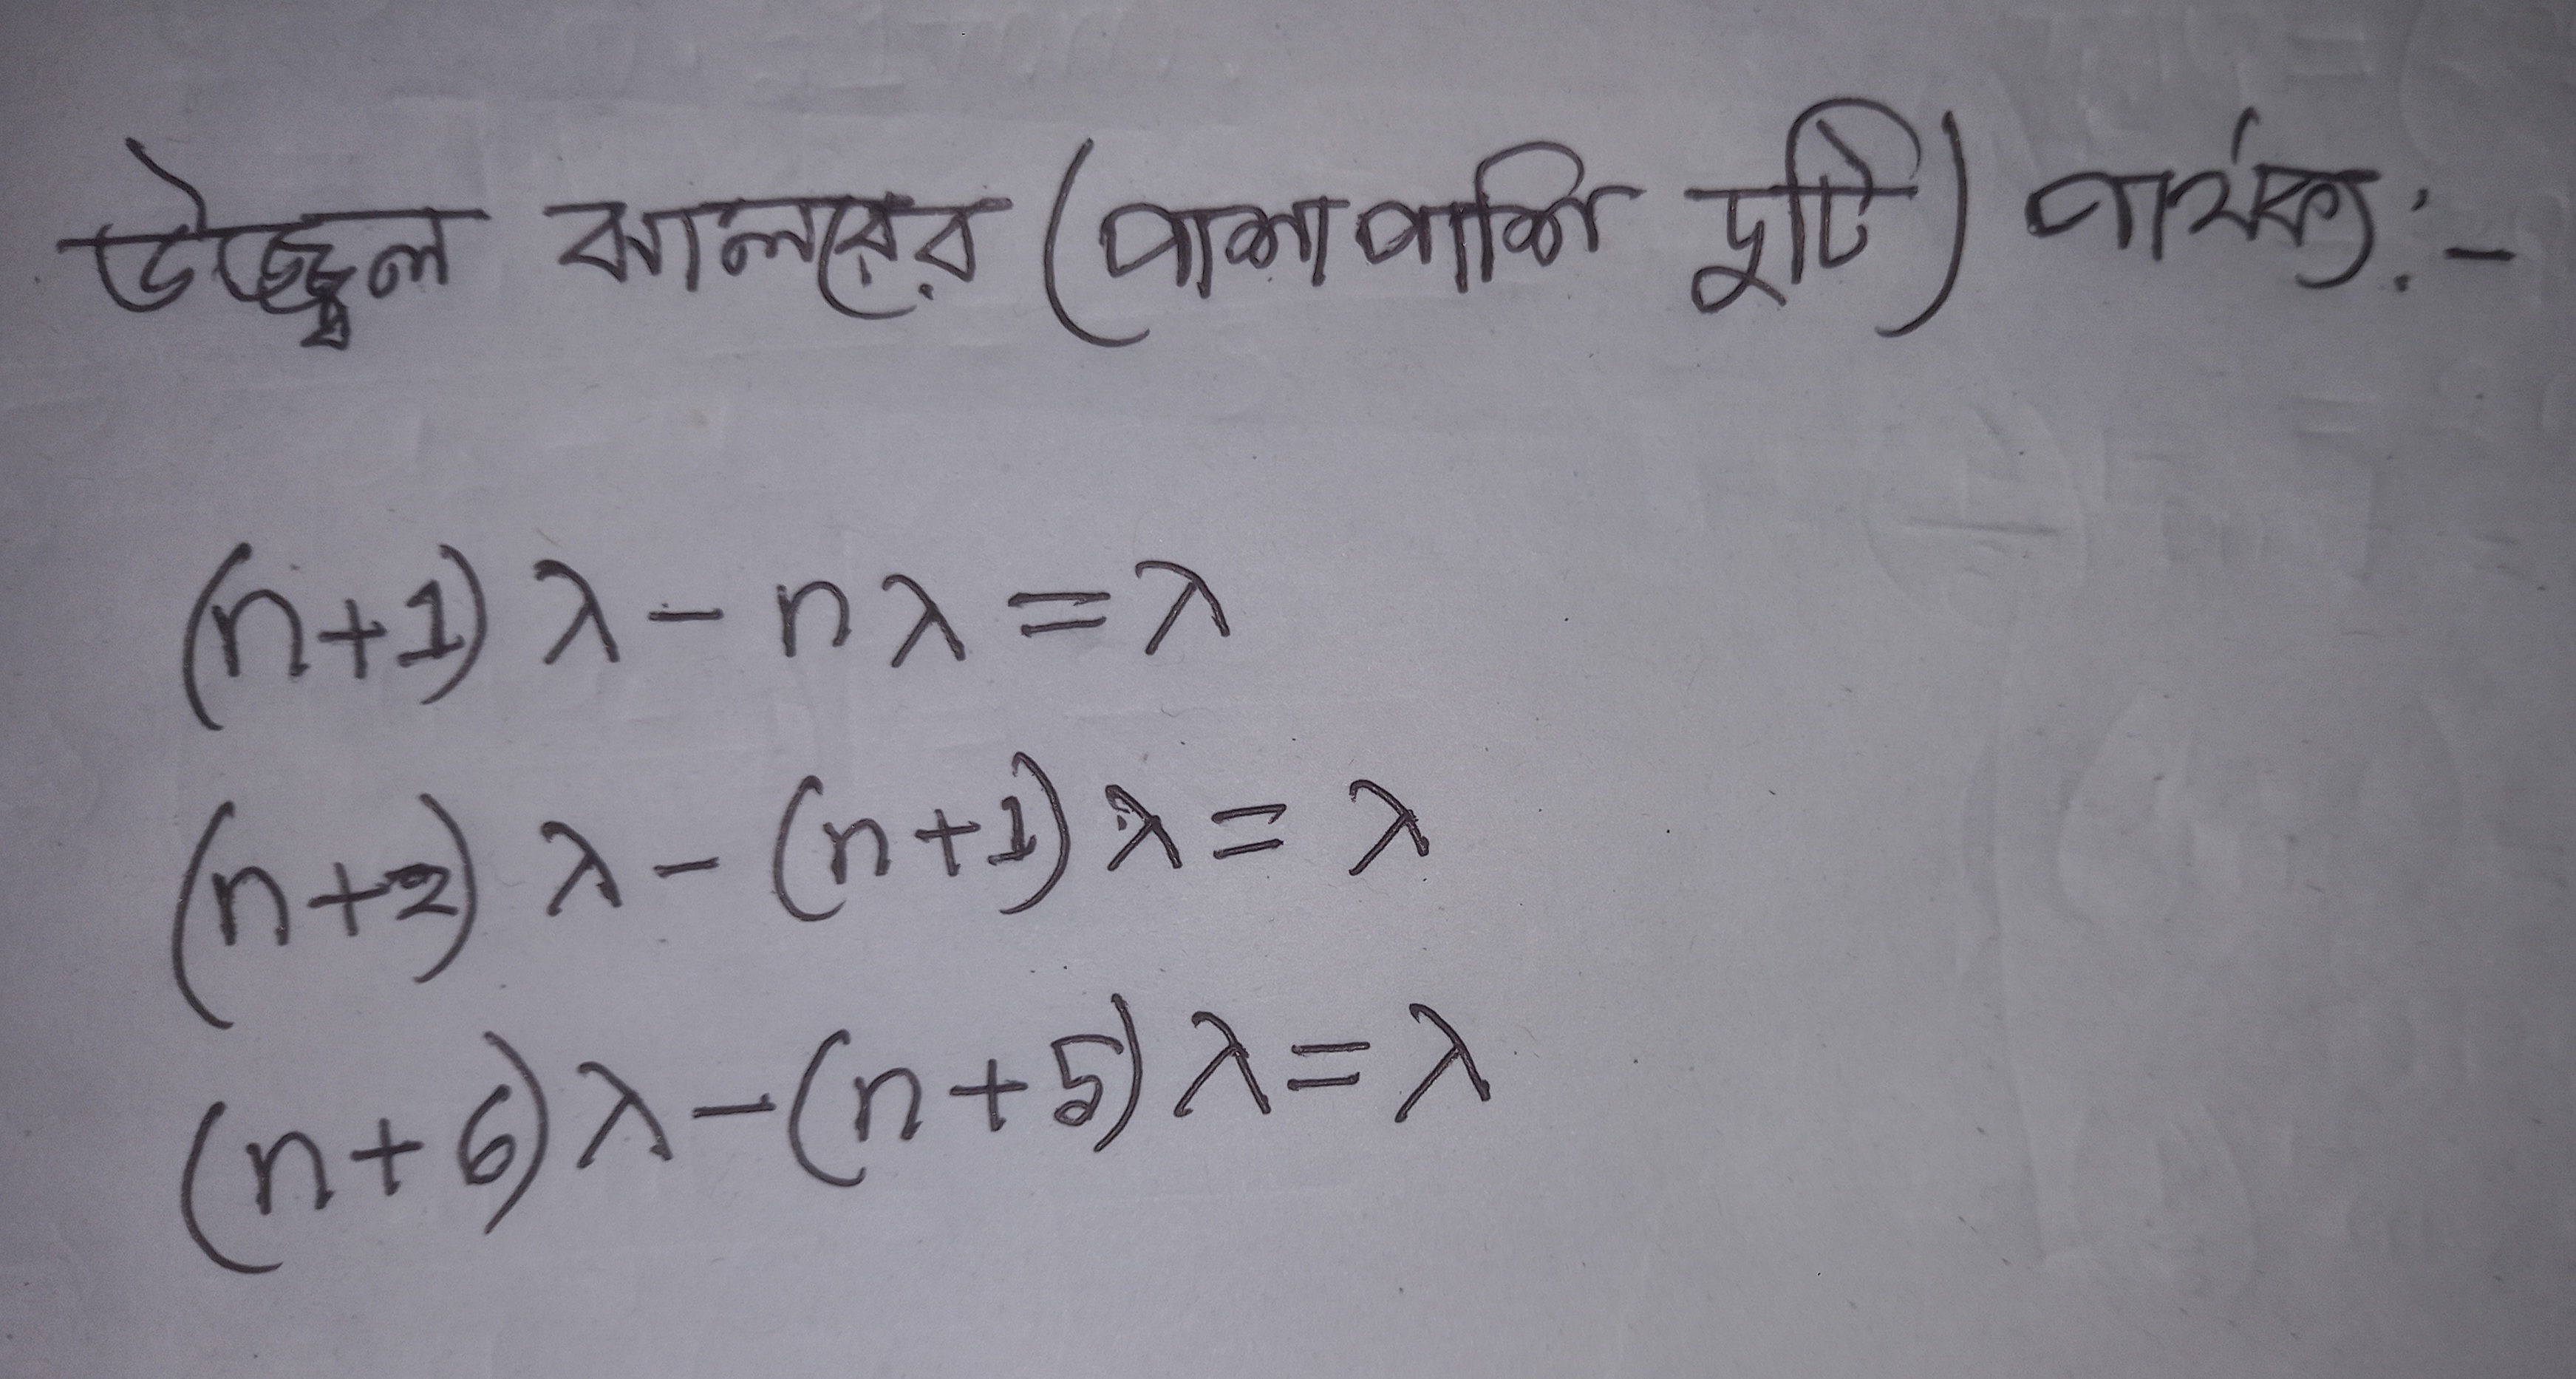 উজ্জ্বল ঝালরের (পাশাপাশি দুটি) পার্থক্য:-
(n+1) λ - n λ = λ
(n+2) λ - (n+1) λ = λ
(n+6) λ - (n+5) λ = λ